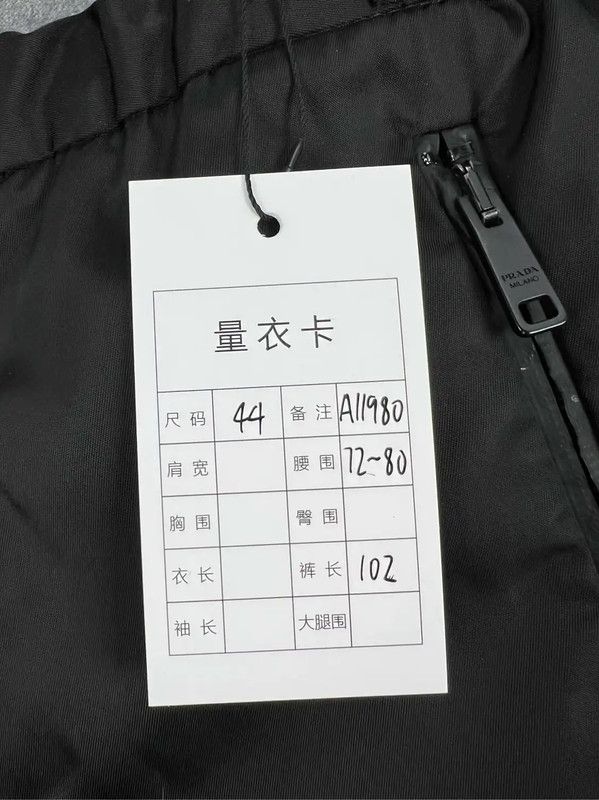 PRADA
MILANO
量衣卡
尺码 44 备注 A11980
肩宽 腰围 72~80
胸围 臀围
衣长 裤长 102
袖长 大腿围